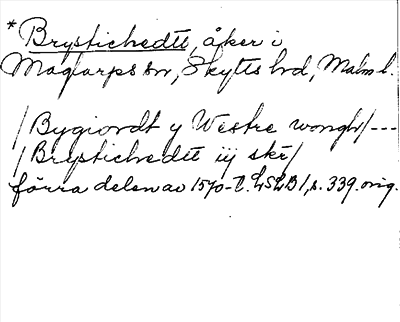 * Brystichedtt, åker i
Maglarps sn, Skytts hrd, Malm.l.
/Bygiordt y Westre wongh/---
/Brystichedtt iij skr/
förra delen av 1570-t. LSLB1, s. 339. orig.